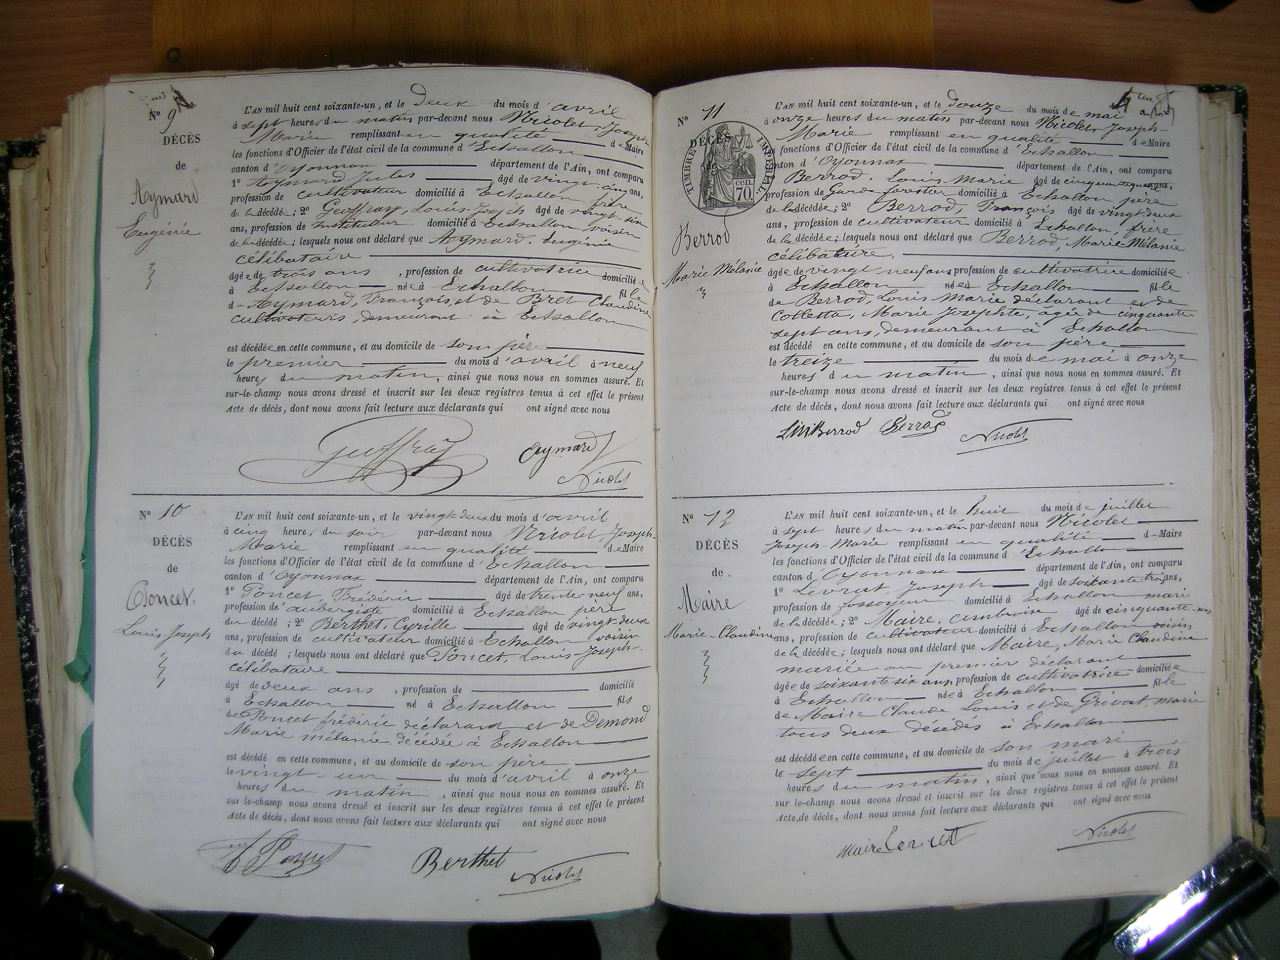 N° 9
DÉCÈS
de
Aymard
Eugénie
L'AN mil huit cent soixante-un, et le Deux du mois d'avril
à sept heures du matin par-devant nous Nicolet, Joseph-
Marie remplissant en qualité de Maire
les fonctions d'Officier de l'état civil de la commune d'Echallon
canton d'Oyonnax département de l'Ain, ont comparu
1° Aymard Jules âgé de vingt cinq ans,
profession de cultivateur domicilié à Echallon frère
de la décédée; 2° Geoffray, Louis Joseph âgé de vingt six
ans, profession de Instituteur domicilié à Echallon voisin
de la décédée; lesquels nous ont déclaré que Aymard, Eugénie
célibataire
âgée de trois ans, profession de cultivatrice domiciliée
à Echallon née à Echallon fille
d'Aymard, François, et de Bret Claudine
cultivateurs, demeurant à Echallon
est décédée en cette commune, et au domicile de son père
le premier du mois d'avril à neuf
heures du matin, ainsi que nous nous en sommes assuré. Et
sur-le-champ nous avons dressé et inscrit sur les deux registres tenus à cet effet le présent
Acte de décès, dont nous avons fait lecture aux déclarants qui ont signé avec nous
Geoffray Aymard
Nicolet
N° 10
DÉCÈS
de
Poncet
Louis Joseph
L'AN mil huit cent soixante-un, et le vingt deux du mois d'avril
à cinq heures du soir par-devant nous Nicolet, Joseph-
Marie remplissant en qualité de Maire
les fonctions d'Officier de l'état civil de la commune d'Echallon
canton d'Oyonnax département de l'Ain, ont comparu
1° Poncet, Frédéric âgé de trente neuf ans,
profession d'aubergiste domicilié à Echallon père
du décédé; 2° Berthet, Cyrille âgé de vingt deux
ans, profession de cultivateur domicilié à Echallon voisin
du décédé; lesquels nous ont déclaré que Poncet, Louis Joseph-
célibataire
âgé de deux ans, profession de domicilié
à Echallon né à Echallon fils
de Poncet frédéric déclarant et de Demond
Marie mélanie décédée à Echallon
est décédé en cette commune, et au domicile de son père
le vingt-un du mois d'avril à onze
heures du matin, ainsi que nous nous en sommes assuré. Et
sur-le-champ nous avons dressé et inscrit sur les deux registres tenus à cet effet le présent
Acte de décès, dont nous avons fait lecture aux déclarants qui ont signé avec nous
Poncet Berthet Nicolet
N° 11
DÉCÈS
TIMBRE IMPÉRIAL
70 CEN.
Berrod
Marie Mélanie
L'AN mil huit cent soixante-un, et le douze du mois de mai
à onze heures du matin par-devant nous Nicolet, Joseph-
Marie remplissant en qualité de Maire
les fonctions d'Officier de l'état civil de la commune d'Echallon
canton d'Oyonnax département de l'Ain, ont comparu
Berrod, Louis Marie âgé de cinquante ans,
profession de Garde forestier domicilié à Echallon père
de la décédée; 2° Berrod, François âgé de vingt deux
ans, profession de cultivateur domicilié à Echallon, frère
de la décédée; lesquels nous ont déclaré que Berrod, Marie Mélanie
célibataire
âgée de vingt neuf ans profession de cultivatrice domiciliée
à Echallon née à Echallon fille
de Berrod, Louis Marie déclarant et de
Colletta, Marie Josephte, agée de cinquante
sept ans, demeurant à Echallon
est décédé en cette commune, et au domicile de son père
le treize du mois de mai à onze
heures du matin, ainsi que nous nous en sommes assuré. Et
sur-le-champ nous avons dressé et inscrit sur les deux registres tenus à cet effet le présent
Acte de décès, dont nous avons fait lecture aux déclarants qui ont signé avec nous
Berrod Berrod Nicolet
N° 12
DÉCÈS
de
Maire
Marie-Claudine
L'AN mil huit cent soixante-un, et le huit du mois de juillet
à sept heures du matin par-devant nous Nicolet
Joseph-Marie remplissant en qualité de Maire
les fonctions d'Officier de l'état civil de la commune d'Echallon
canton d'Oyonnax département de l'Ain, ont comparu
1° Levrat, Joseph âgé de soixante trois ans,
profession de fossoyeur domicilié à Echallon mari
de la décédée; 2° Maire, Ambroise âgé de cinquante-
ans, profession de cultivateur domicilié à Echallon voisin
de la décédée; lesquels nous ont déclaré que Maire, Marie Claudine
mariée au premier déclarant
âgée de soixante six ans, profession de cultivatrice domiciliée
à Echallon née à Echallon fille
de Maire Claude Louis et de Grévat marie
tous deux décédés à Echallon
est décédée en cette commune, et au domicile de son mari
le sept du mois de juillet à trois
heures du matin, ainsi que nous nous en sommes assuré. Et
sur-le-champ nous avons dressé et inscrit sur les deux registres tenus à cet effet le présent
Acte de décès, dont nous avons fait lecture aux déclarants qui ont signé avec nous
Maire Levrat Nicolet